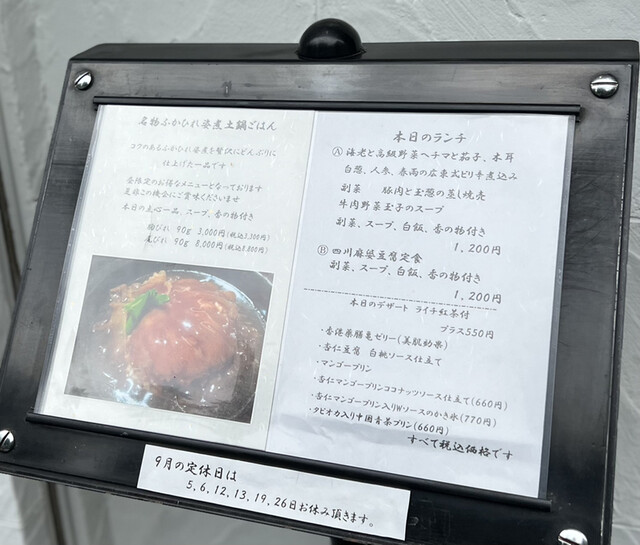 名物ふかひれ姿煮土鍋ごはん
コクのあるふかひれ姿煮を贅沢にどんぶりに
仕上げた一品です。
昼限定のお得なメニューとなっております
是非この機会にご賞味くださいませ
本日の点心一品、スープ、香の物付き
胸びれ 90g 3,000円(税込3,300円)
尾びれ 90g 8,000円(税込8,800円)
本日のランチ
Ⓐ 海老と高級野菜ヘチマと茄子、木耳
白葱、人参、春雨の広東式ピリ辛煮込み
副菜 豚肉と玉葱の蒸し焼売
牛肉野菜玉子のスープ
副菜、スープ、白飯、香の物付き
1,200円
Ⓑ 四川麻婆豆腐定食
副菜、スープ、白飯、香の物付き
1,200円
本日のデザート ライチ紅茶付
プラス550円
・香港薬膳亀ゼリー(美肌効果)
・杏仁豆腐 白桃ソース仕立て
・マンゴープリン
・杏仁マンゴープリンココナッツソース仕立て(660円)
・杏仁マンゴープリン入りWソースのかき氷(770円)
・タピオカ入り中国青茶プリン(660円)
すべて税込価格です
9月の定休日は
5,6,12,13,19,26日お休み頂きます。